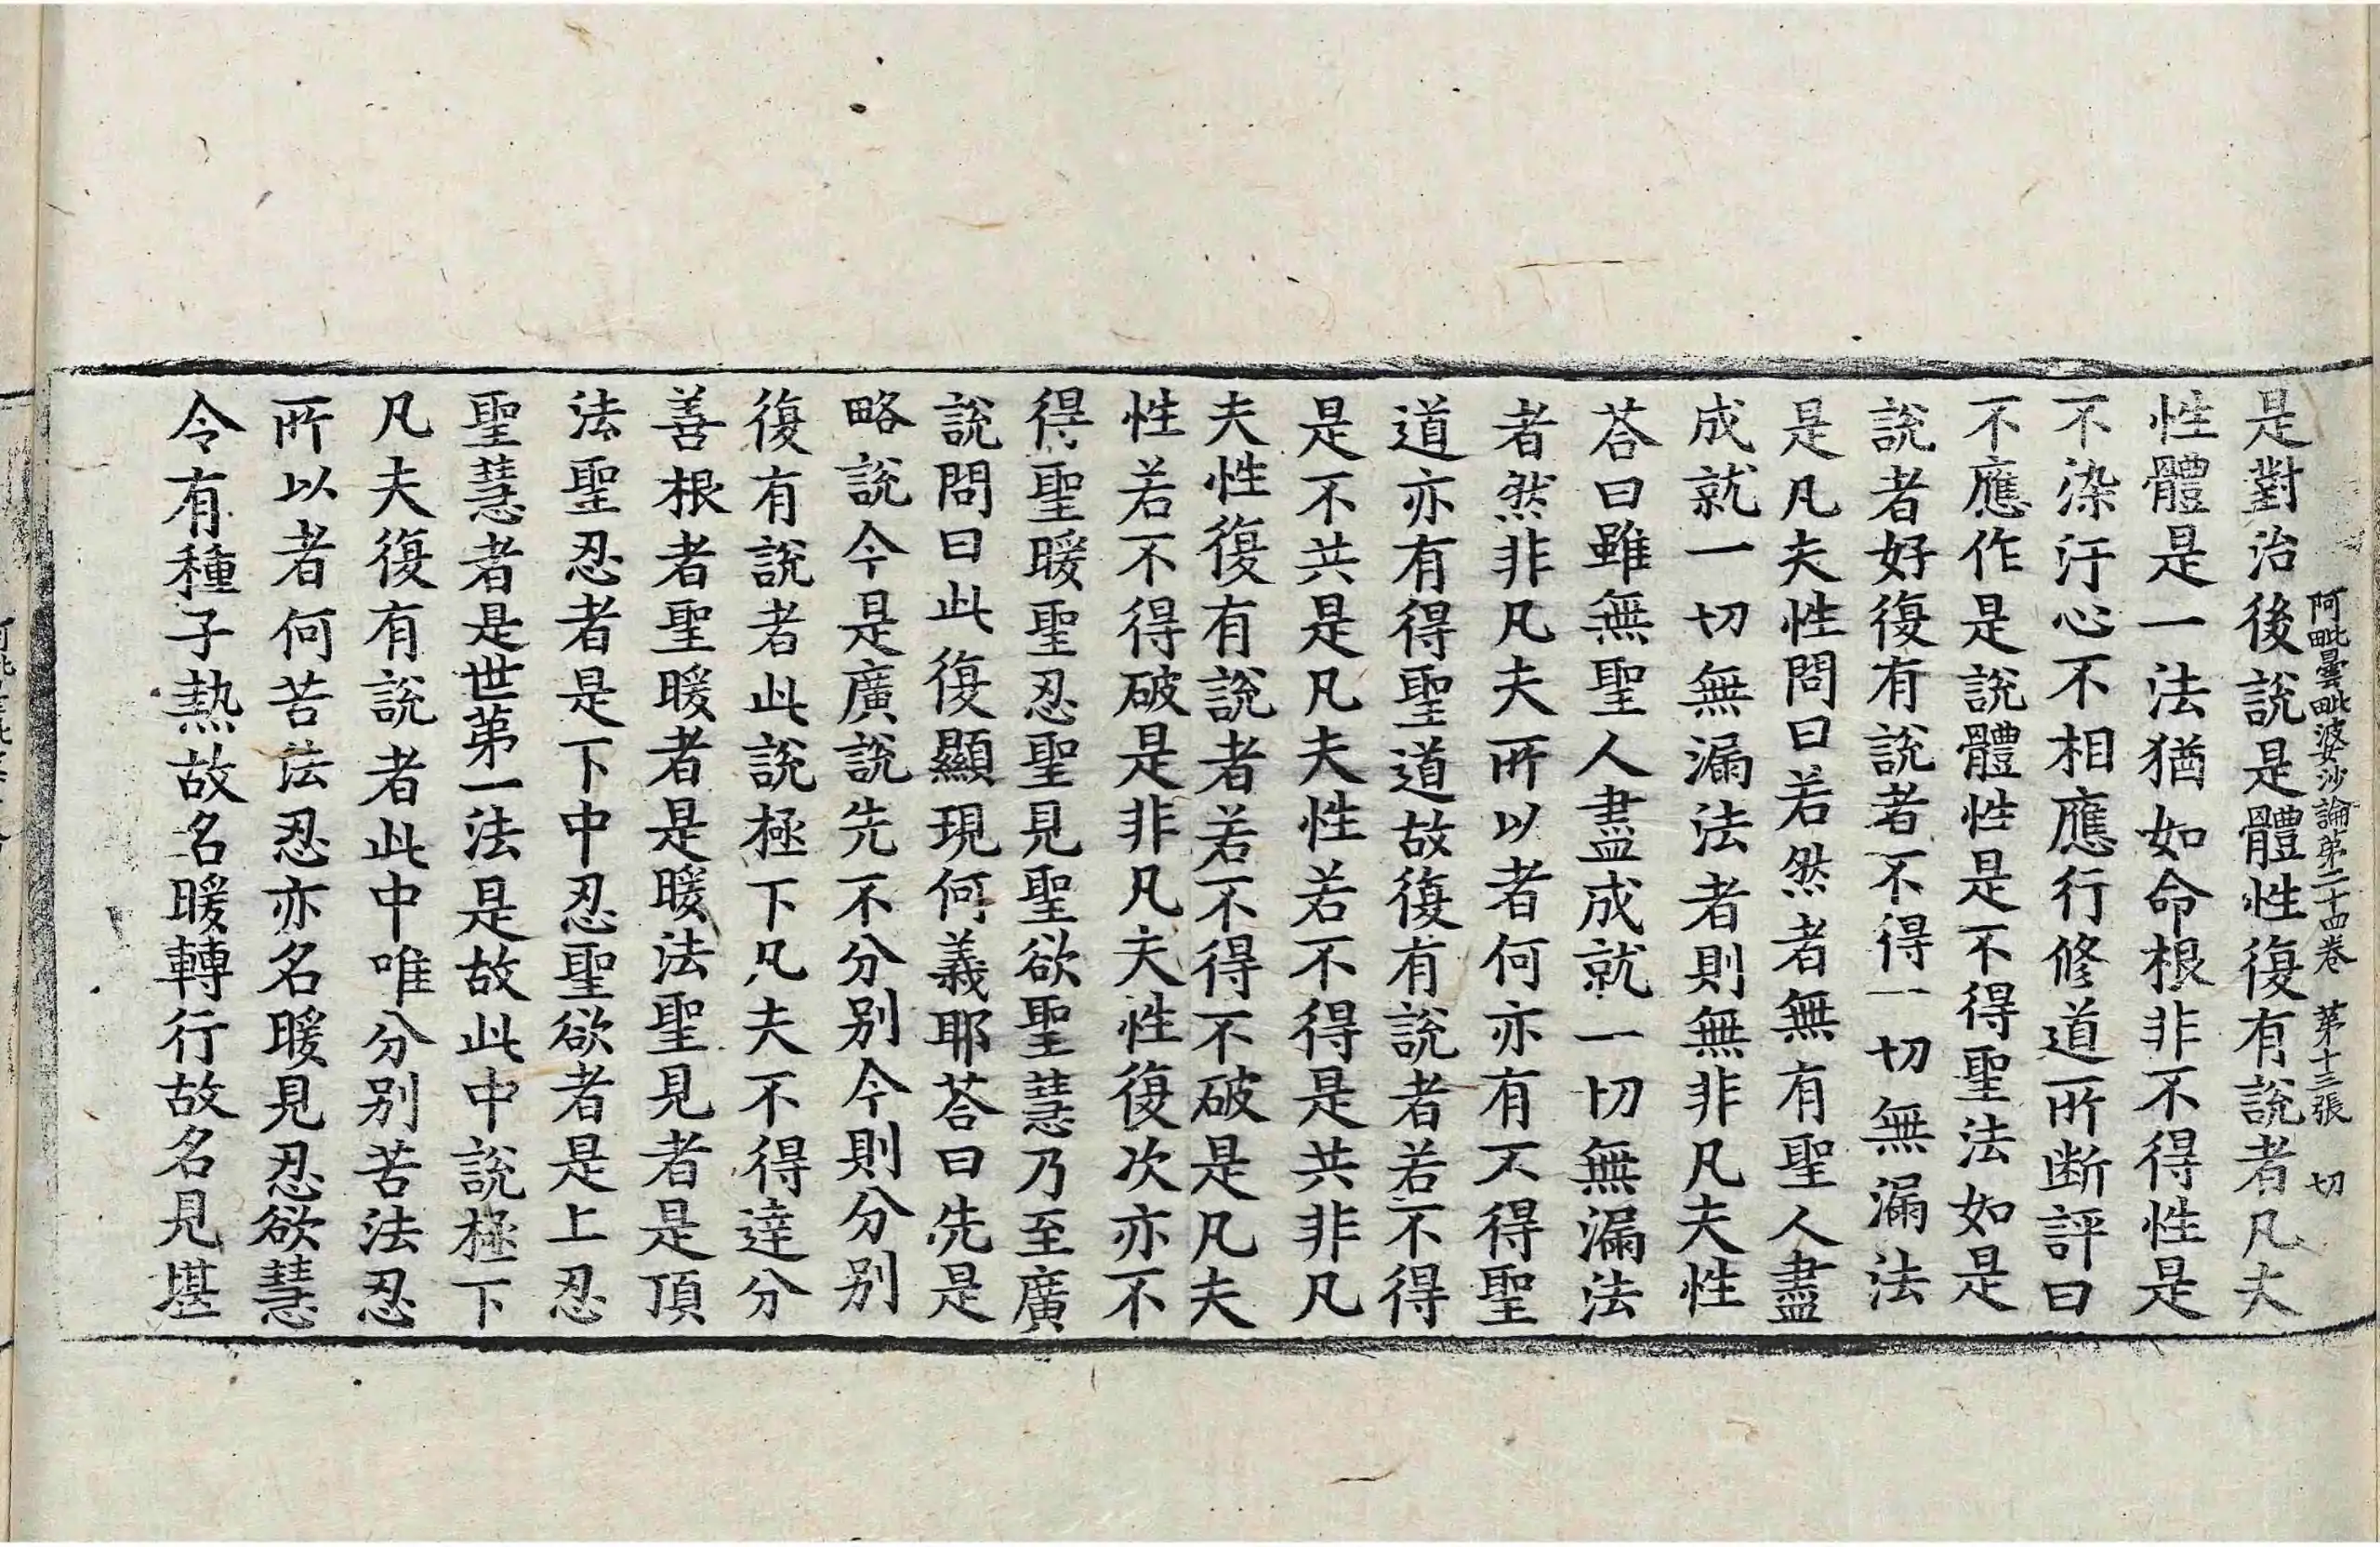 阿毗曇毗婆沙論第二十四卷 第十三張 切
是對治後說是體性復有說者凡夫
性體是一法猶如命根非不得性是
不染汙心不相應行修道所斷評曰
不應作是說體性是不得聖法如是
說者好復有說者不得一切無漏法
是凡夫性問曰若然者無有聖人盡
成就一切無漏法者則無非凡夫性
荅曰雖無聖人盡成就一切無漏法
者然非凡夫所以者何亦有不得聖
道亦有得聖道故復有說者若不得
是不共是凡夫性若不得是共非凡
夫性復有說者若不得不破是凡夫
性若不得破是非凡夫性復次亦不
得聖暖聖忍聖見聖欲聖慧乃至廣
說問曰此復顯現何義耶荅曰先是
略說今是廣說先不分別今則分別
復有說者此說極下凡夫不得達分
善根者聖暖者是暖法聖見者是頂
法聖忍者是下中忍聖欲者是上忍
聖慧者是世第一法是故此中說極下
凡夫復有說者此中唯分別苦法忍
所以者何苦法忍亦名暖見忍欲慧
令有種子熱故名暖轉行故名見堪